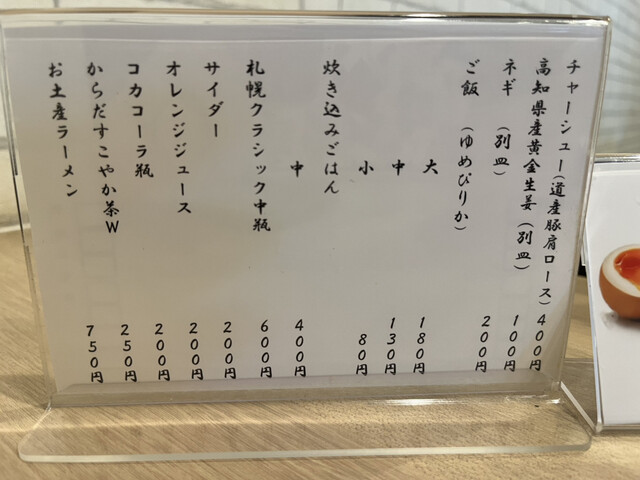 チャーシュー(道産豚肩ロース) 400円
高知県産黄金生姜(別皿) 100円
ネギ (別皿) 200円
ご飯 (ゆめぴりか)
大 180円
中 130円
小 80円
炊き込みごはん
中 400円
札幌クラシック中瓶 600円
サイダー 200円
オレンジジュース 200円
コカコーラ瓶 200円
からだすこやか茶W 250円
お土産ラーメン 750円